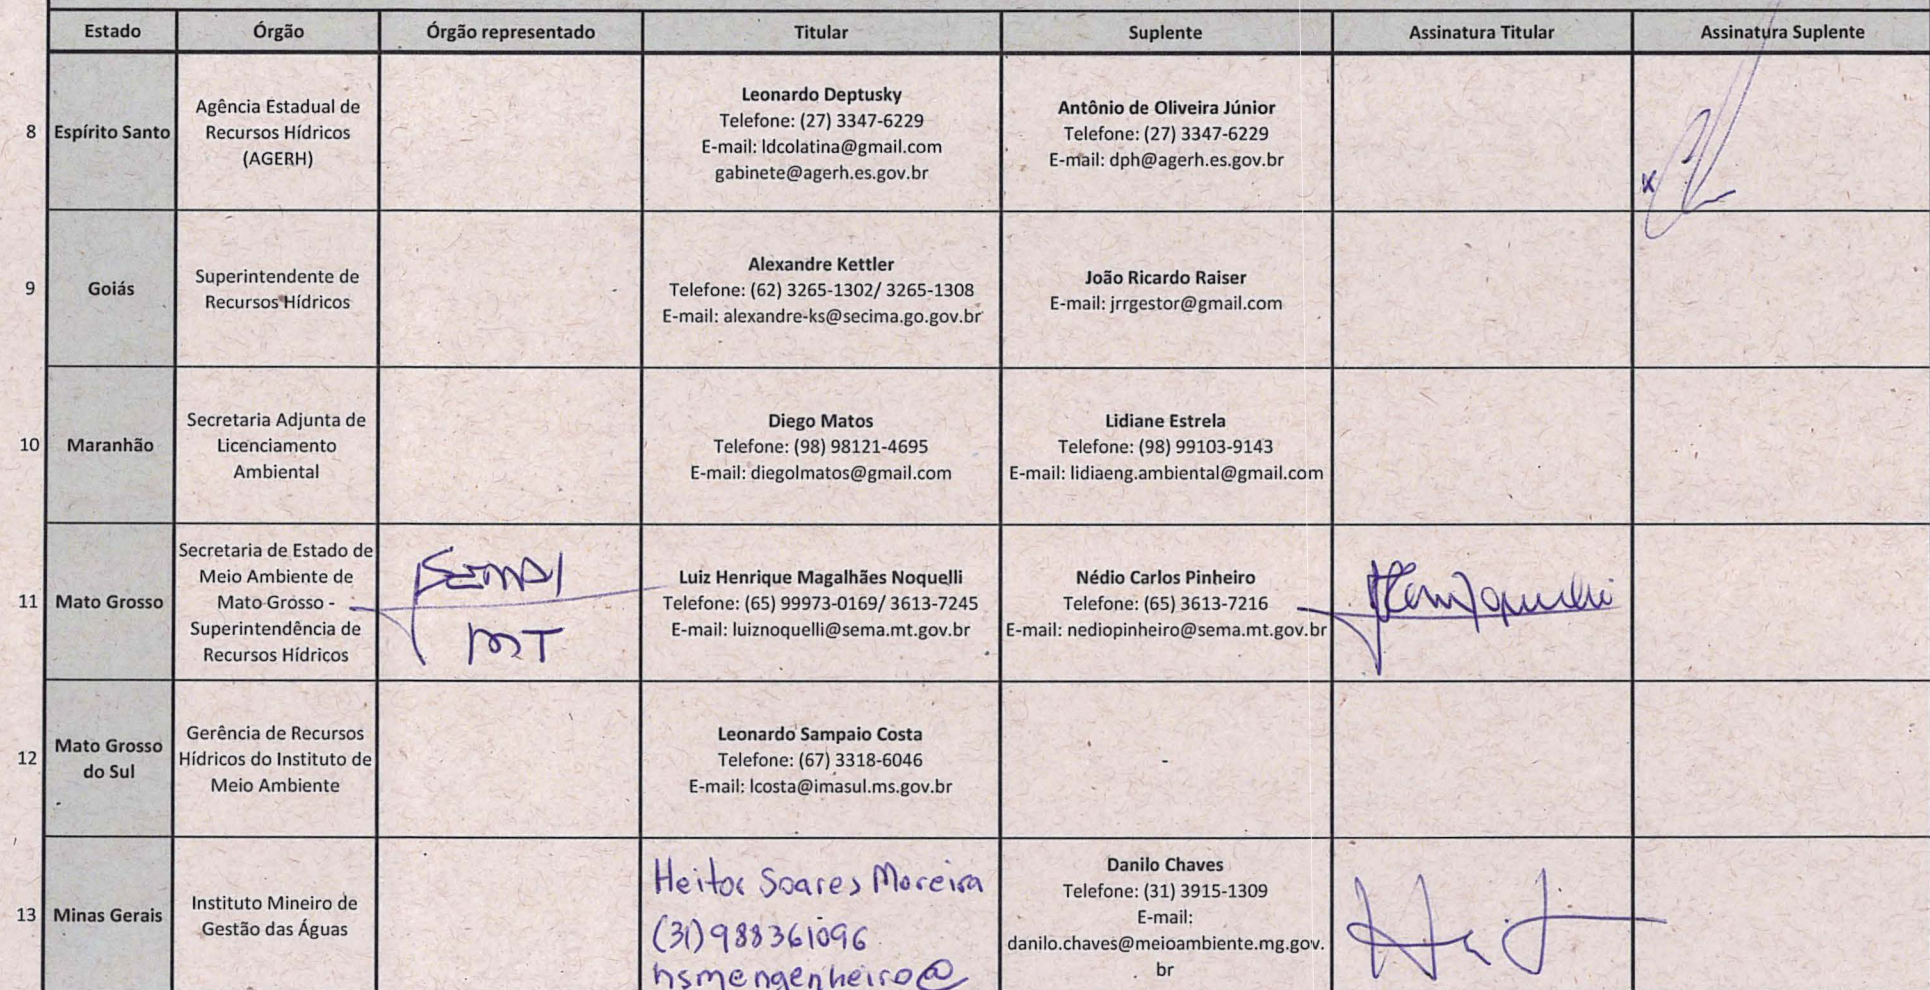 Estado Órgão Órgão representado Titular Suplente Assinatura Titular Assinatura Suplente
8
Espírito Santo
Agência Estadual de
Recursos Hídricos
(AGERH)
Leonardo Deptusky
Telefone: (27) 3347-6229
E-mail: ldcolatina@gmail.com
gabinete@agerh.es.gov.br
Antônio de Oliveira Júnior
Telefone: (27) 3347-6229
E-mail: dph@agerh.es.gov.br
x
9
Goiás
Superintendente de
Recursos Hídricos
Alexandre Kettler
Telefone: (62) 3265-1302/ 3265-1308
E-mail: alexandre-ks@secima.go.gov.br
João Ricardo Raiser
E-mail: jrrgestor@gmail.com
10
Maranhão
Secretaria Adjunta de
Licenciamento
Ambiental
Diego Matos
Telefone: (98) 98121-4695
E-mail: diegolmatos@gmail.com
Lidiane Estrela
Telefone: (98) 99103-9143
E-mail: lidiaeng.ambiental@gmail.com
11
Mato Grosso
Secretaria de Estado de
Meio Ambiente de
Mato Grosso -
Superintendência de
Recursos Hídricos
SEMA
MT
Luiz Henrique Magalhães Noquelli
Telefone: (65) 99973-0169/ 3613-7245
E-mail: luiznoquelli@sema.mt.gov.br
Nédio Carlos Pinheiro
Telefone: (65) 3613-7216
E-mail: nediopinheiro@sema.mt.gov.br
12
Mato Grosso
do Sul
Gerência de Recursos
Hídricos do Instituto de
Meio Ambiente
Leonardo Sampaio Costa
Telefone: (67) 3318-6046
E-mail: lcosta@imasul.ms.gov.br
-
13
Minas Gerais
Instituto Mineiro de
Gestão das Águas
Heitor Soares Moreira
(31) 988361096
hsmengenheiro@
Danilo Chaves
Telefone: (31) 3915-1309
E-mail:
danilo.chaves@meioambiente.mg.gov.
br